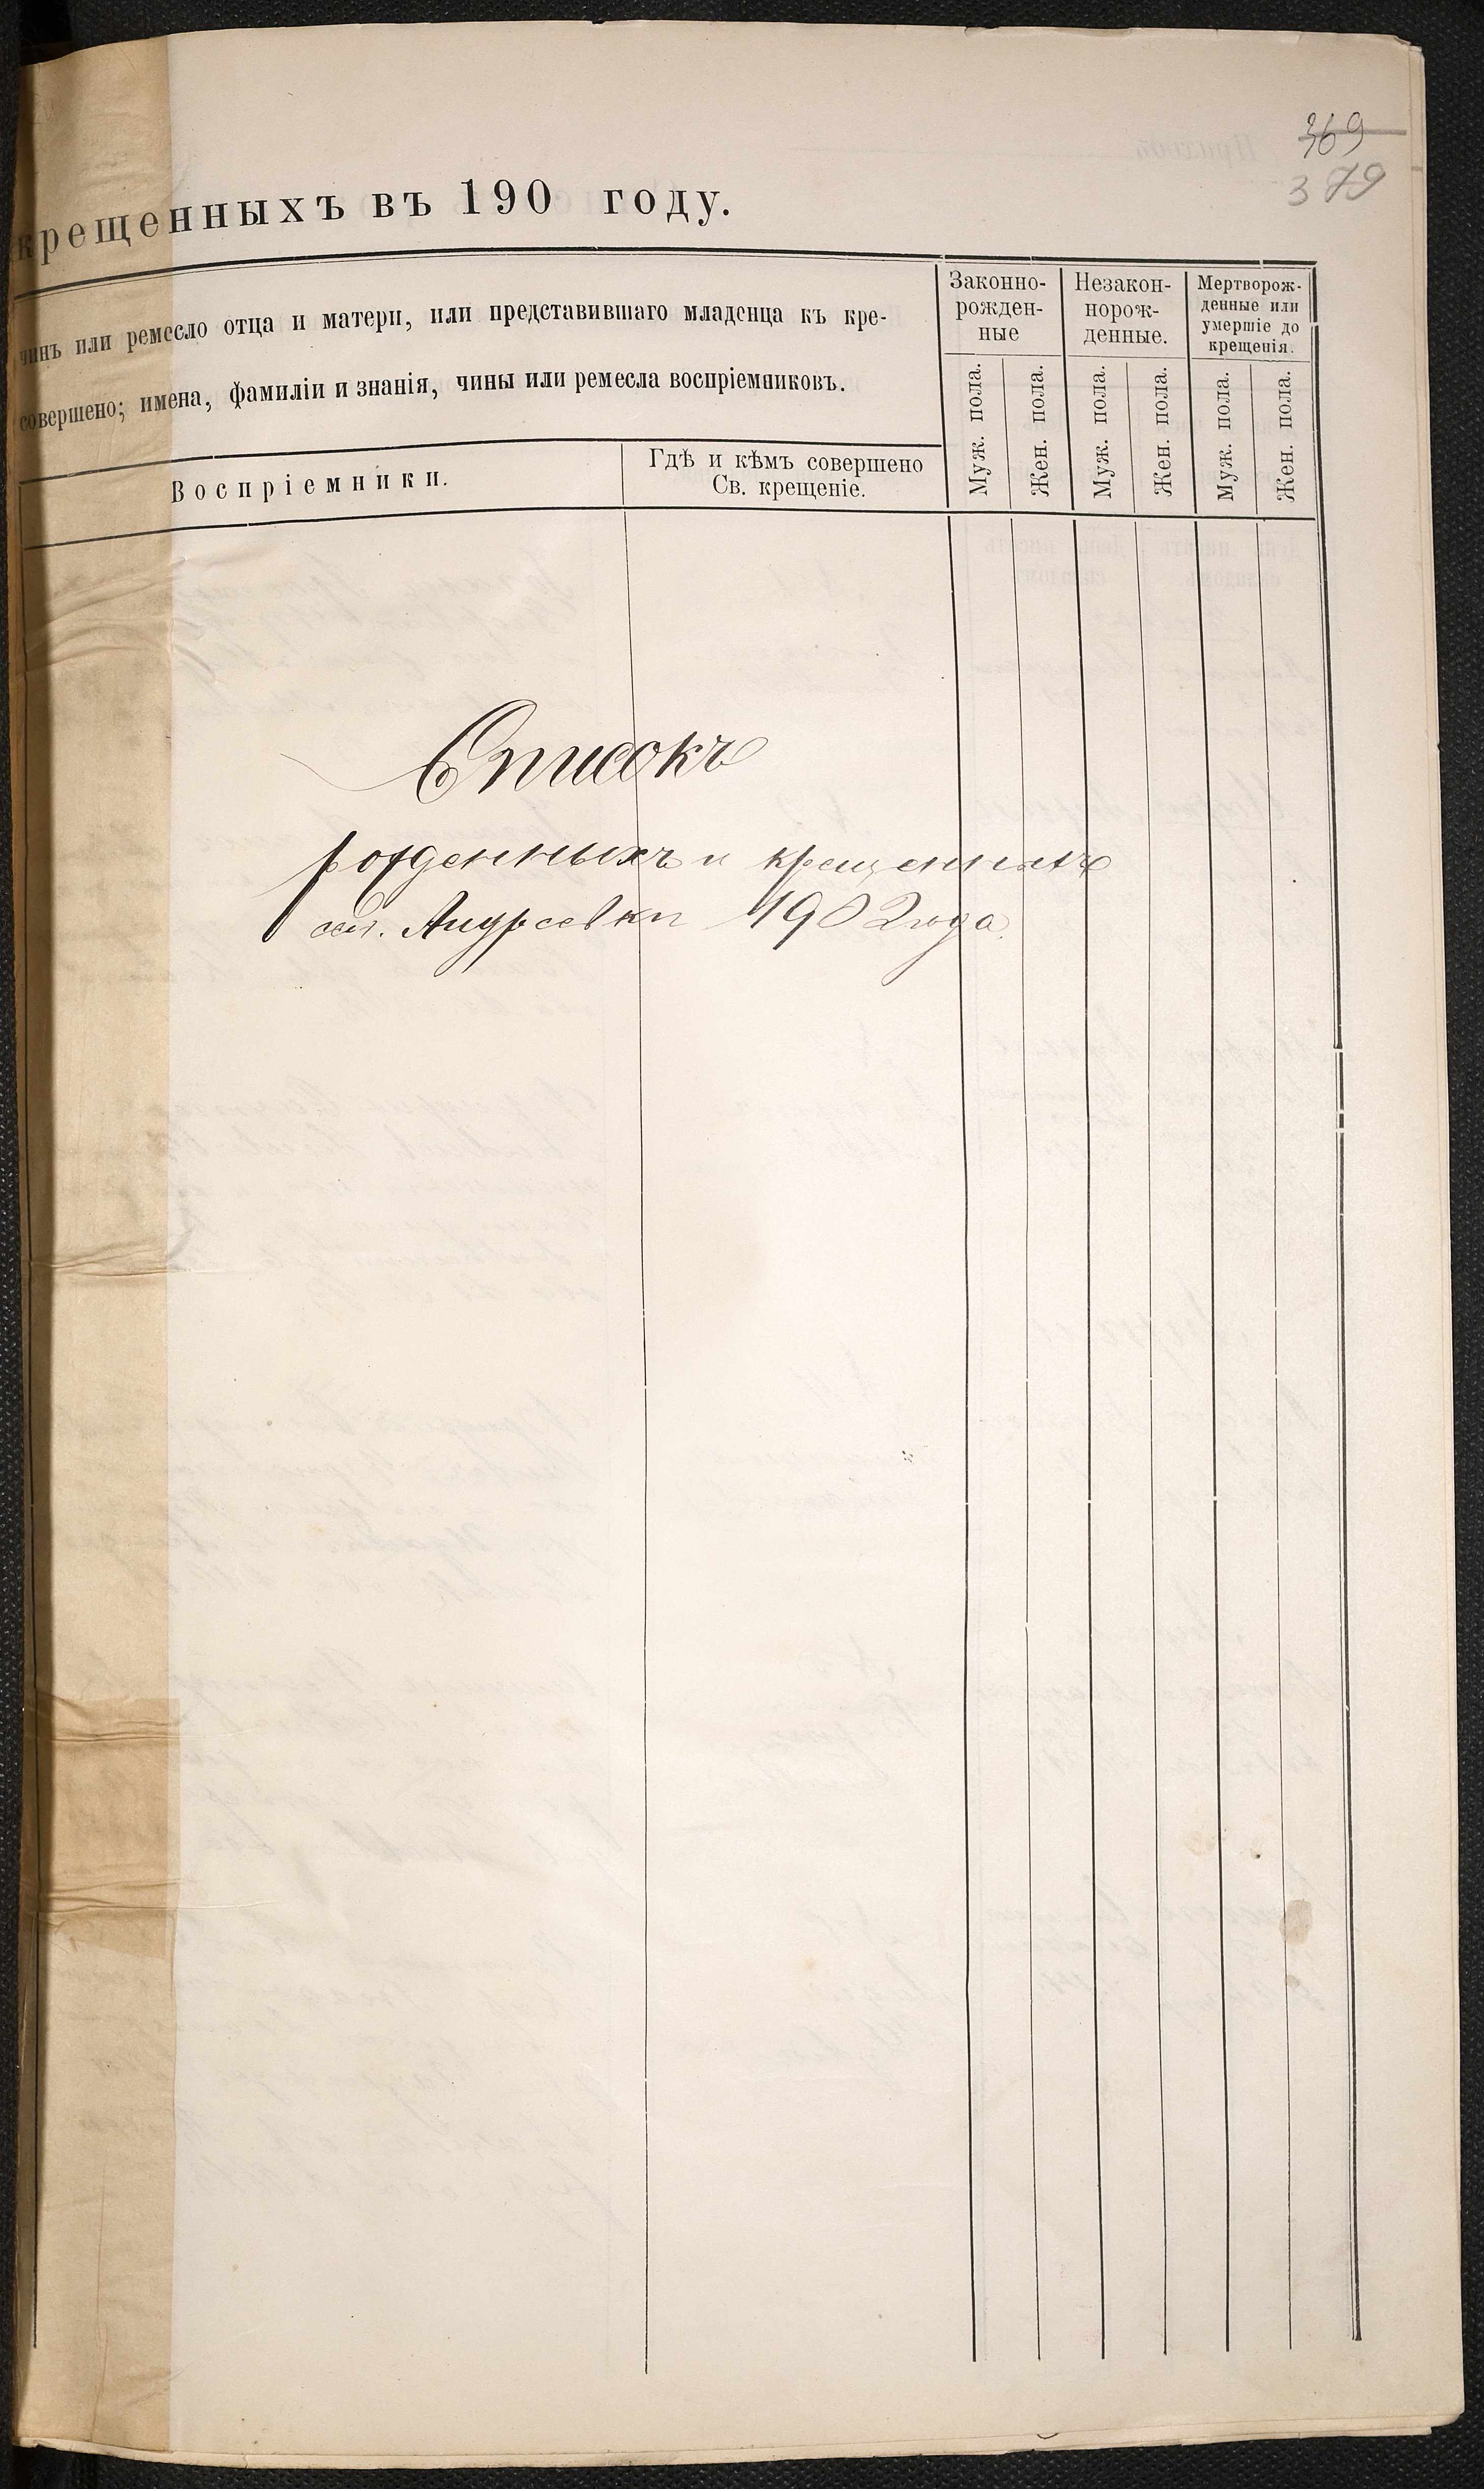 369
379
крещенныхъ въ 190 году.
чинъ или ремесло отца и матери, или представившаго младенца къ кре-
совершено; имена, фамиліи и знанія, чины или ремесла воспріемниковъ.
Воспріемники.
Гдѣ и кѣмъ совершено
Св. крещеніе.
Законно-
рожден-
ные
Незакон-
норож-
денные.
Мертворож-
денные или
умершіе до
крещенія.
Муж. пола.
Жен. пола.
Муж. пола.
Жен. пола.
Муж. пола.
Жен. пола.
Списокъ
рожденныхъ и крещенныхъ
сел. Андреевки 1902 года.